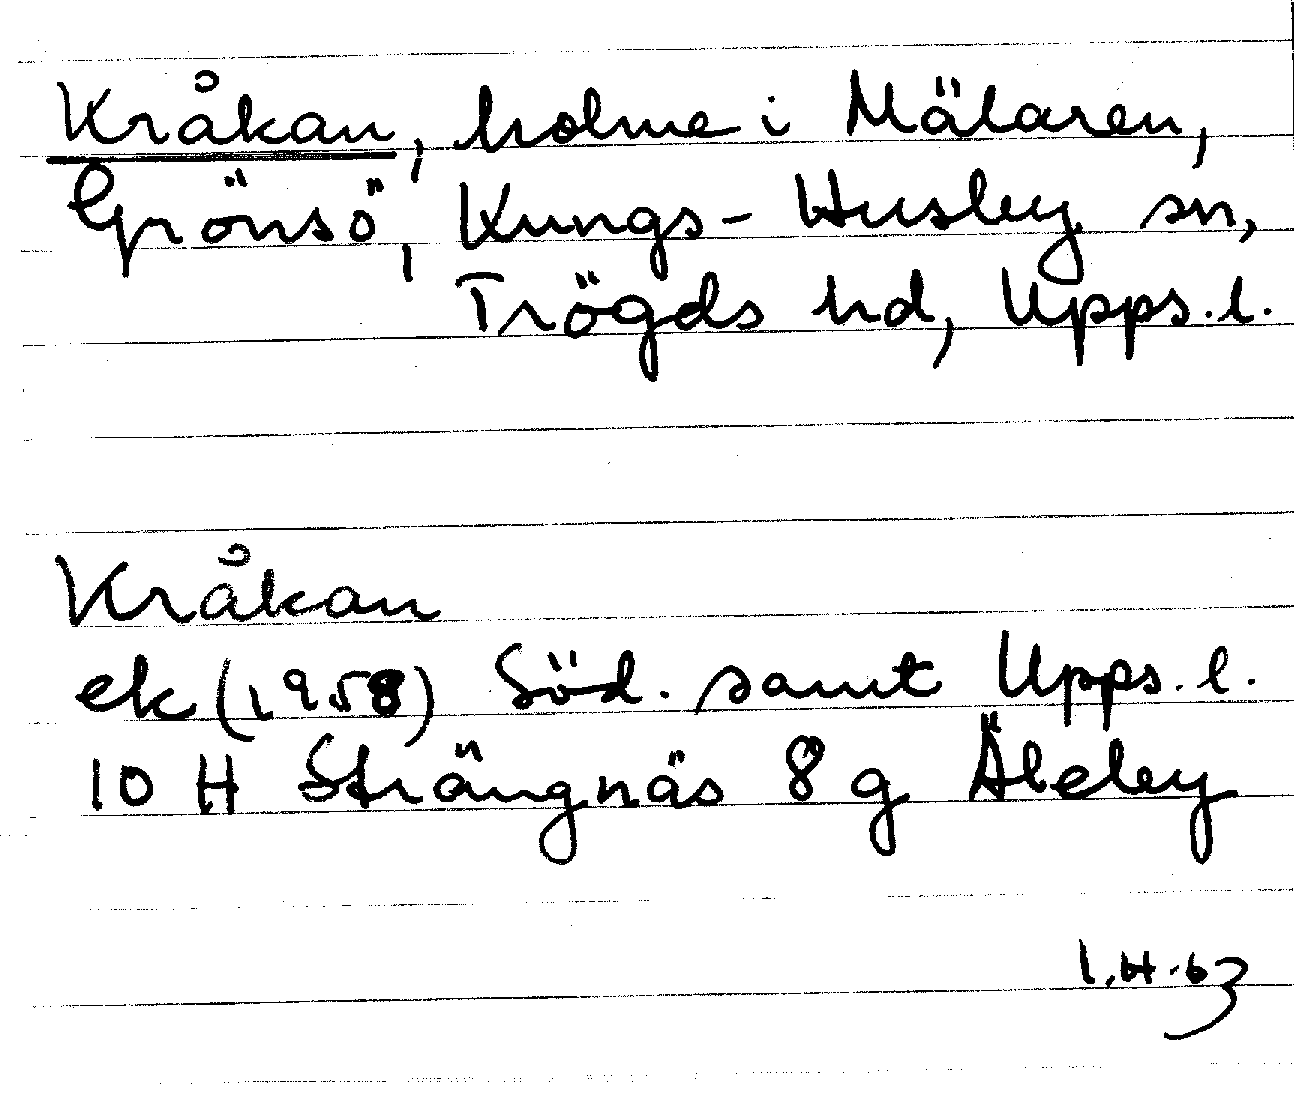 Kråkan, holme i Mälaren,
Grönsö, Kungs-Husby sn,
Trögds hd, Upps.l.
Kråkan
ek (1958) Söd. samt Upps.l.
10 H Strängnäs 8 g Äleby
I.H.63